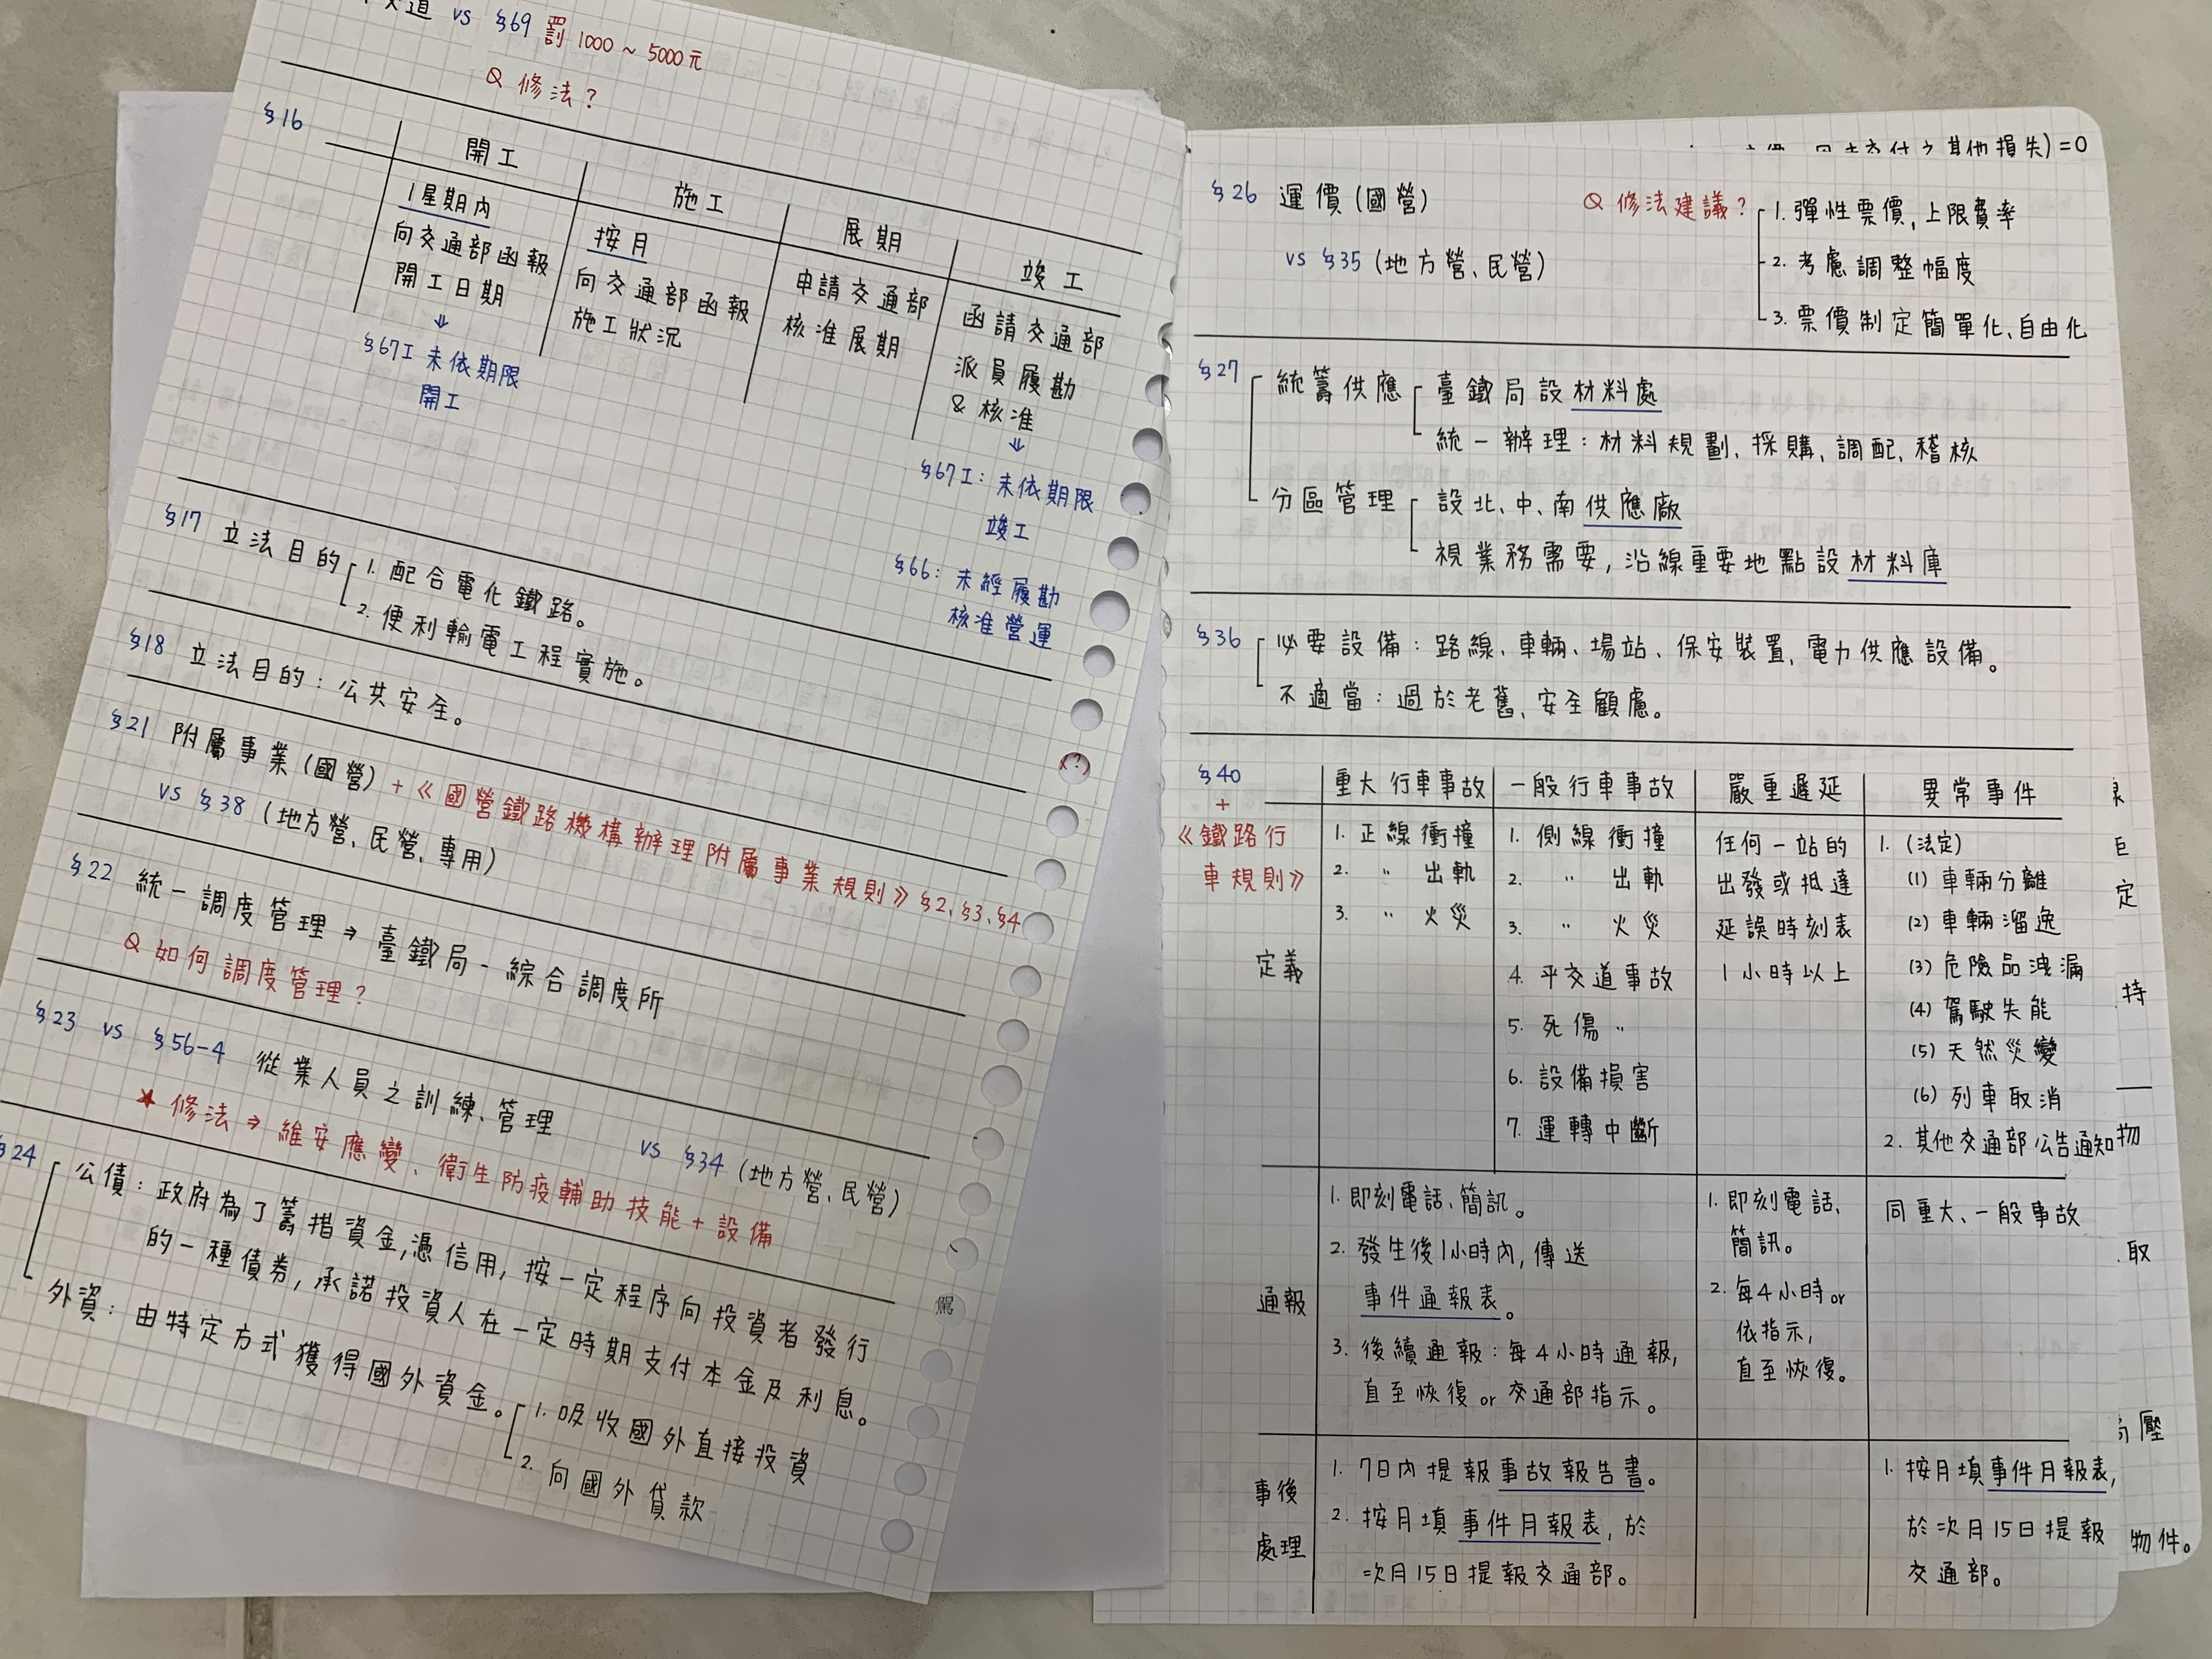 交道 vs §69 罰 1000 ~ 5000元
Q 修法?
§16
開工
施工
展期
竣工
1星期內
向交通部函報
開工日期
↓
§67I 未依期限
開工
按月
向交通部函報
施工狀況
申請交通部
核准展期
函請交通部
派員履勘
& 核准
↓
§67I: 未依期限
竣工
§66: 未經履勘
核准營運
§17 立法目的 1. 配合電化鐵路。
2. 便利輸電工程實施。
§18 立法目的: 公共安全。
§21 附屬事業(國營) + 《國營鐵路機構辦理附屬事業規則》§2、§3、§4
(?)
vs §38 (地方營、民營、專用)
§22 統一調度管理 → 臺鐵局-綜合調度所
Q 如何調度管理?
§23 vs §56-4 從業人員之訓練、管理
vs §34 (地方營、民營)
★ 修法 → 維安應變、衛生防疫輔助技能+設備
§24 公債: 政府為了籌措資金,憑信用, 按一定程序向投資者發行
的一種債券, 承諾投資人在一定時期支付本金及利息。
外資: 由特定方式獲得國外資金。 1. 吸收國外直接投資
2. 向國外貸款
駕
其他損失)=0
§26 運價(國營)
vs §35 (地方營、民營)
Q 修法建議? 1. 彈性票價, 上限費率
2. 考慮調整幅度
3. 票價制定簡單化、自由化
§27 統籌供應 臺鐵局設材料處
統一辦理: 材料規劃、採購、調配、稽核
分區管理 設北、中、南供應廠
視業務需要, 沿線重要地點設材料庫
§36 必要設備: 路線、車輛、場站、保安裝置、電力供應設備。
不適當: 過於老舊、安全顧慮。
§40
+
《鐵路行
車規則》
重大行車事故
一般行車事故
嚴重遲延
異常事件
定義
1. 正線衝撞
2. 〃 出軌
3. 〃 火災
1. 側線衝撞
2. 〃 出軌
3. 〃 火災
4. 平交道事故
5. 死傷〃
6. 設備損害
7. 運轉中斷
任何一站的
出發或抵達
延誤時刻表
1小時以上
1. (法定)
(1) 車輛分離
(2) 車輛溜逸
(3) 危險品洩漏
(4) 駕駛失能
(5) 天然災變
(6) 列車取消
2. 其他交通部公告通知
通報
1. 即刻電話、簡訊。
2. 發生後1小時內, 傳送
事件通報表。
3. 後續通報: 每4小時通報,
直至恢復 or 交通部指示。
1. 即刻電話、
簡訊。
2. 每4小時 or
依指示,
直至恢復。
同重大、一般事故
事後
處理
1. 7日內提報事故報告書。
2. 按月填事件月報表, 於
次月15日提報交通部。
1. 按月填事件月報表,
於次月15日提報
交通部。
定
持
物
取
壓
物件。